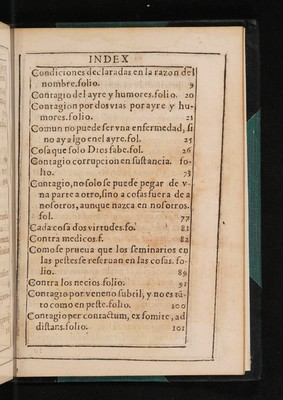 INDEX
Condiciones declaradas en la razon del
nombre.folio. 9
Contagio del ayre y humores.folio. 20
Contagion por dos vias por ayre y hu-
mores.folio. 21
Comun no puede ser vna enfermedad, si
no ay algo en el ayre.fol. 25
Cosa que solo Dios sabe.fol. 26
Contagio corrupcion en sustancia. fo-
lio. 73
Contagio, no solo se puede pegar de v-
na parte a otro, sino a cosas fuera de a
nosotros, aunque nazca en nosotros.
fol. 77
Cada cosa dos virtudes.fo. 81
Contra medicos.f. 82
Como se prueua que los seminarios en
las pestes se reseruan en las cosas. fo-
lio. 89
Contra los necios.folio. 91
Contagio por veneno subtil, y no es tã-
to como en peste.folio. 100
Contagio per contactum, ex fomite, ad
distans.folio. 101